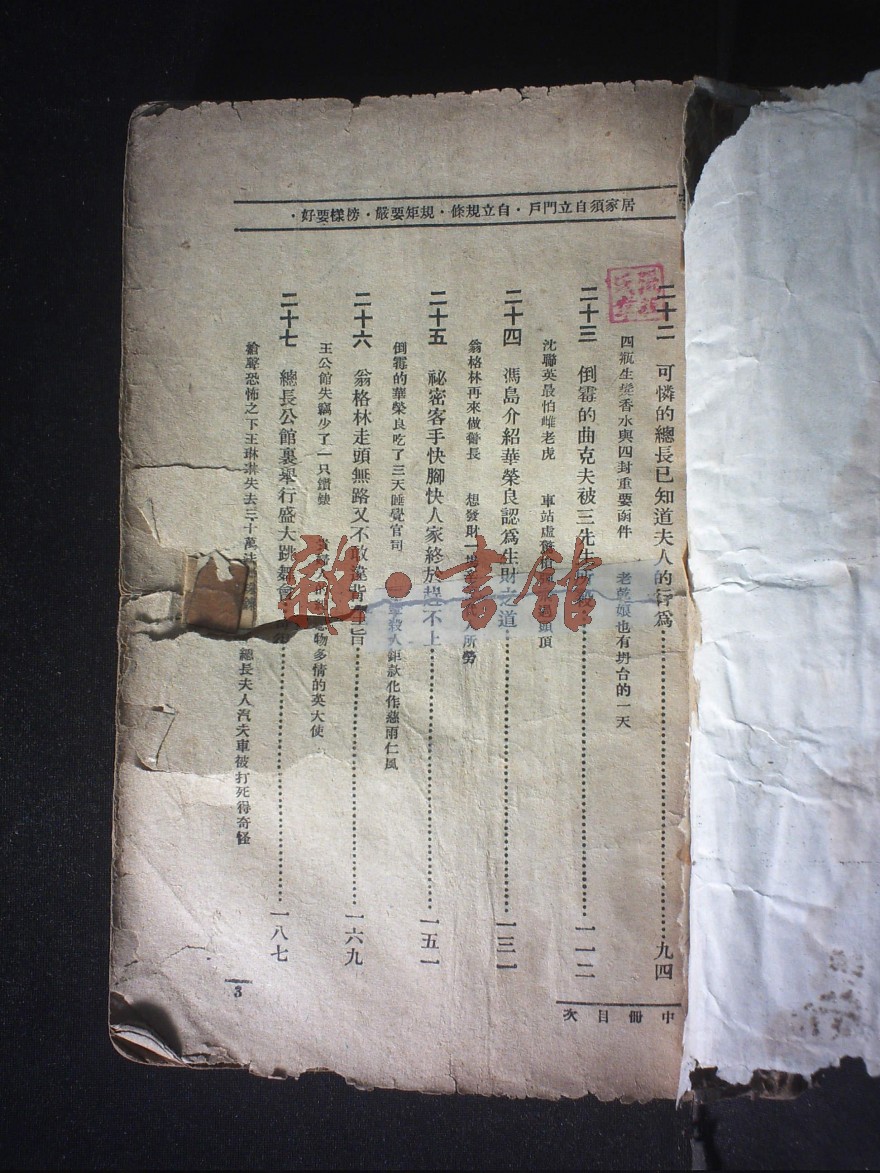 居家須自立門戶・自立規條・規矩要嚴・榜樣要好・
二十二 可憐的總長已知道夫人的行爲 九四
四瓶生髮香水與四封重要函件 老乾娘也有坍台的一天
二十三 倒霉的曲克夫被三先生 一一二
沈聯英最怕雌老虎 車站虛驚 頭頂
二十四 馮島介紹華榮良認爲生財之道 一三一
翁格林再來做營長 想發財一 所勞
二十五 祕密客手快腳快人家終於趕不上 一五一
倒霉的華榮良吃了三天睡覺官司 殺人鉅款化作慈雨仁風
二十六 翁格林走頭無路又不敢違背 旨 一六九
王公館失竊少了一只鑽錶 物多情的英大使
二十七 總長公館裏舉行盛大跳舞會 一八七
槍聲恐怖之下王琳淇失去三十萬 總長夫人汽夫車被打死得奇怪
中冊目次
3
雜・書館